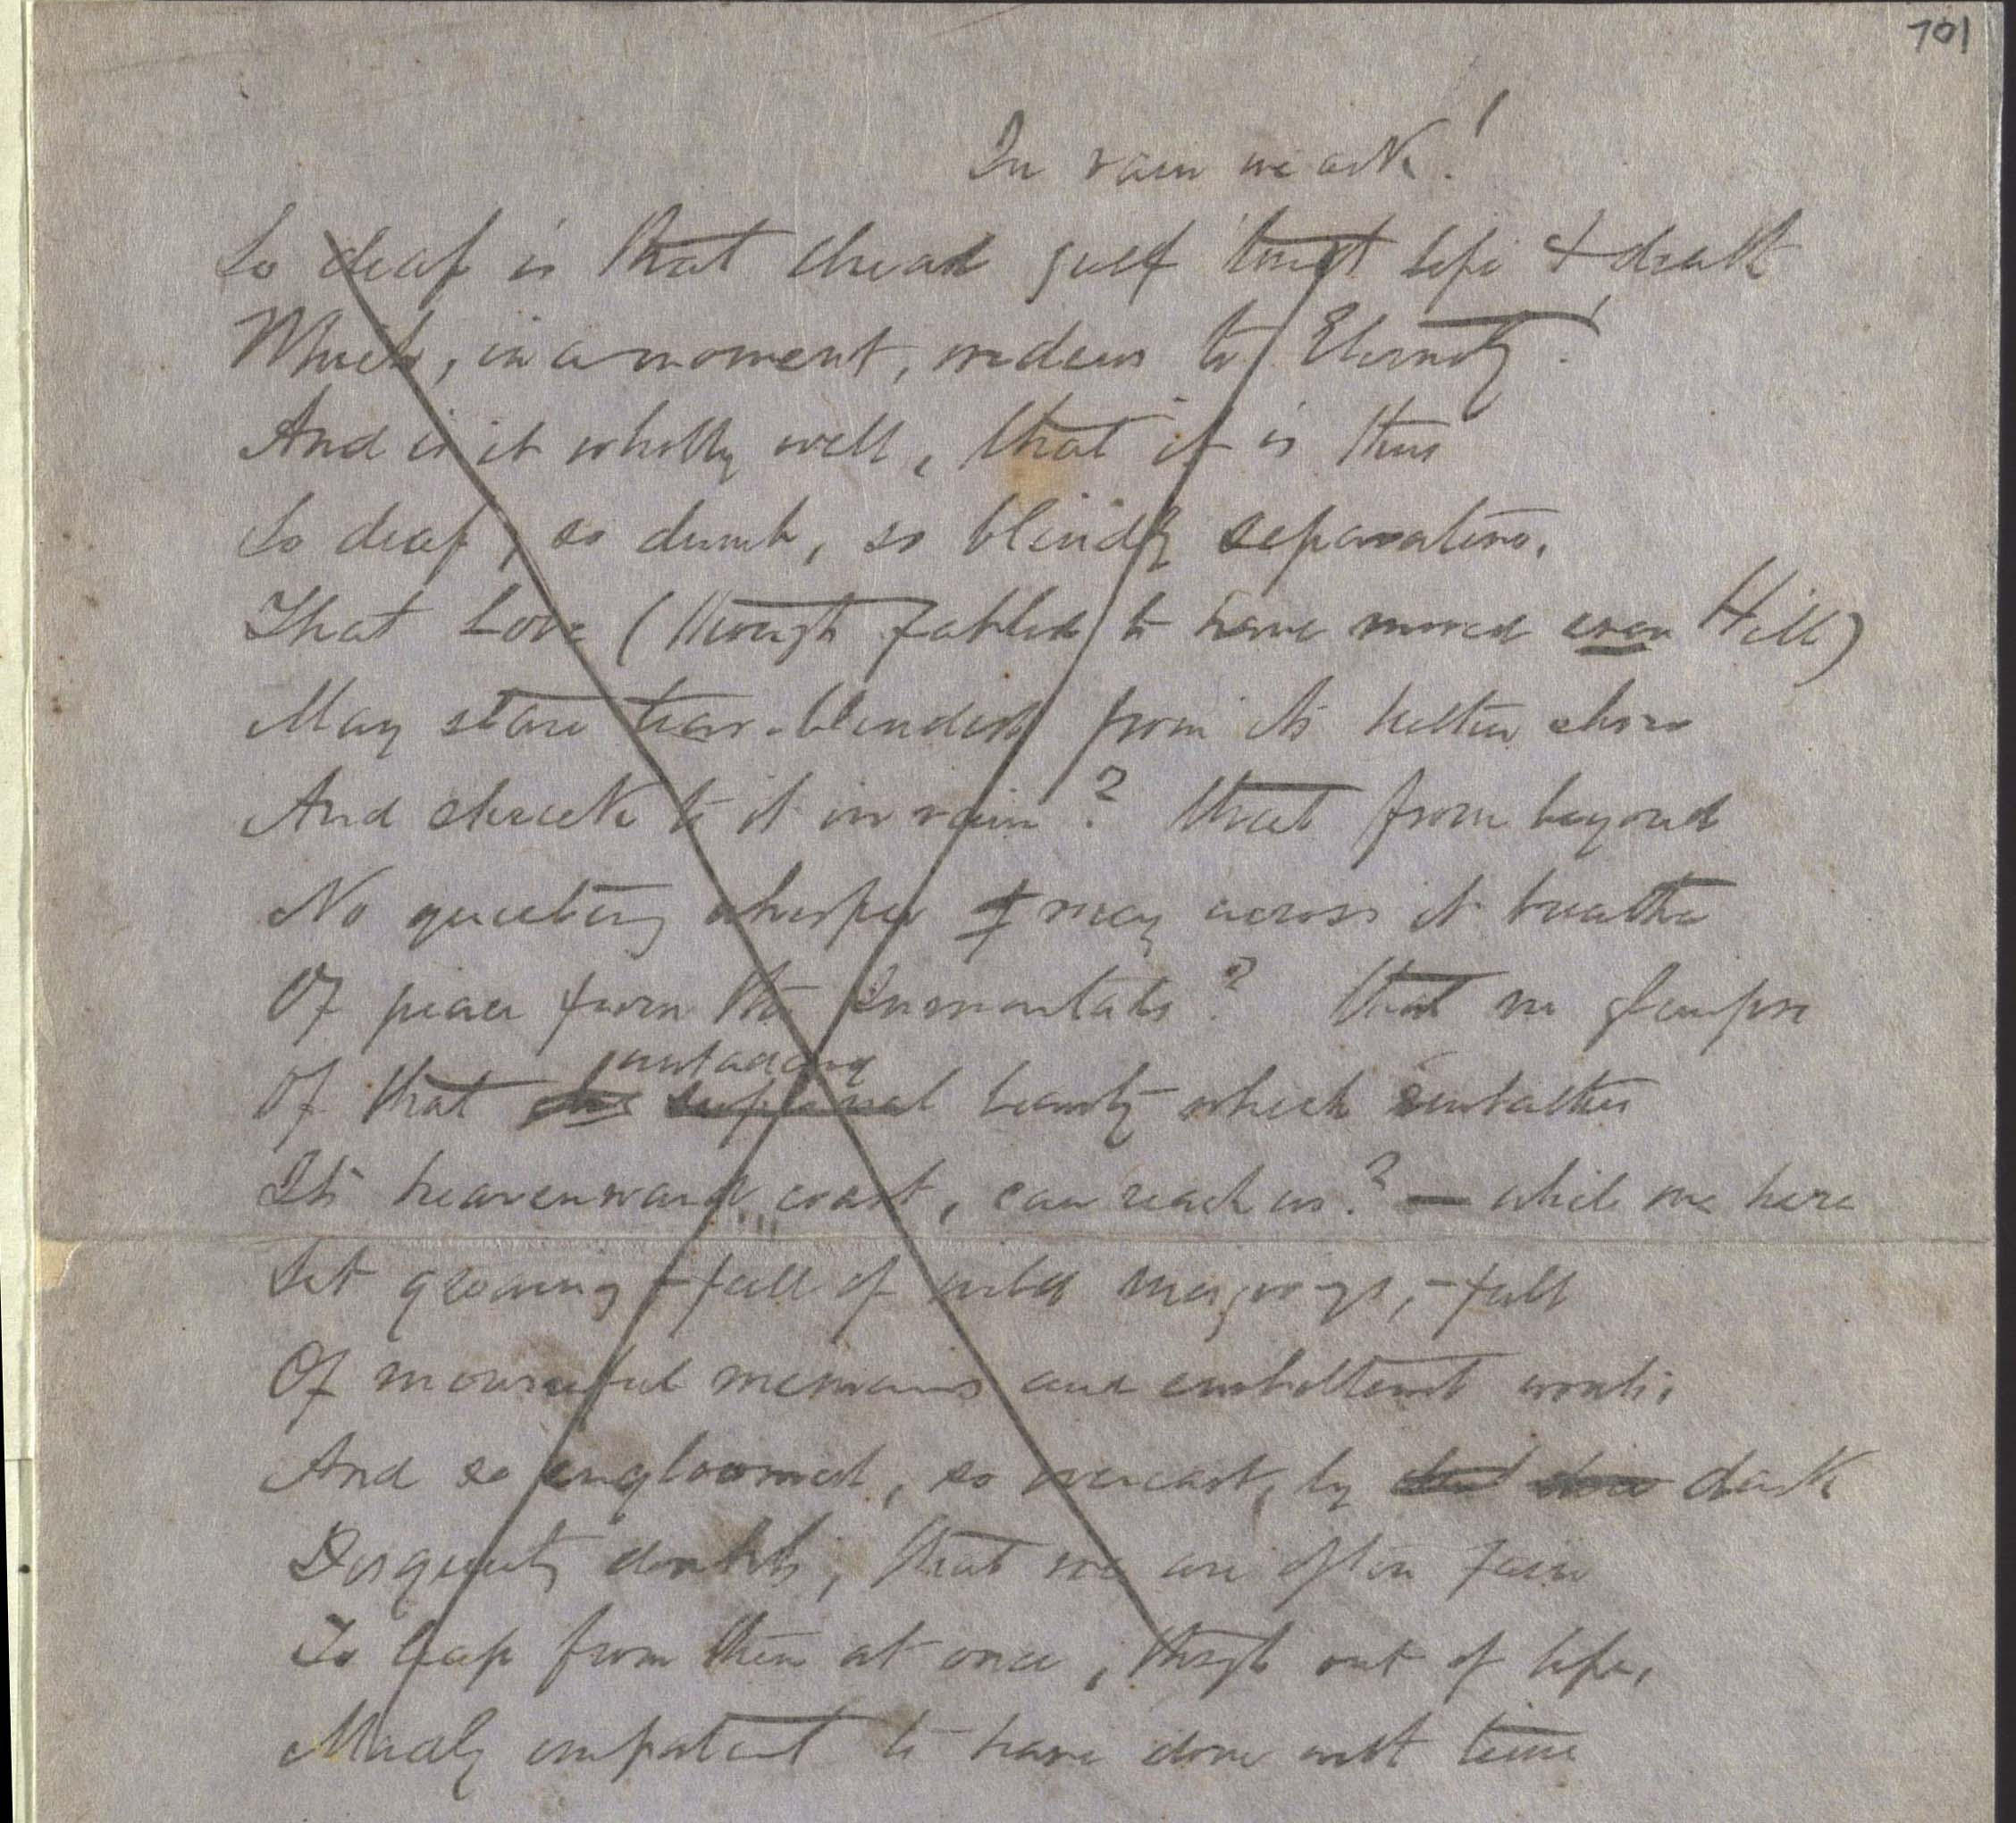 701
In vain we ask!
So deaf is that dread gulf 'twixt life & death
Which, in a moment, widens to Eternity!
And is it wholly well, that it is thus
So deaf, so dumb, so blindly separative,
That Love (though fabled to have moved even Hell)
May stare tear-blinded from its hither shore
And shriek to it in vain? that from beyond
No quieting whisper may across it breathe
Of peace from the Immortals? that no glimpse
unfading
Of that supernal beauty which
Its heavenward coast, can reach us? — while we here
Sit groaning - full of wild misgivings, - full
Of mournful memories and embittered
And so engloomed, so overcast, by dark
Disquieting doubts, that we are often fain
To leap from them at once, though out of life,
Madly impatient to have done with time